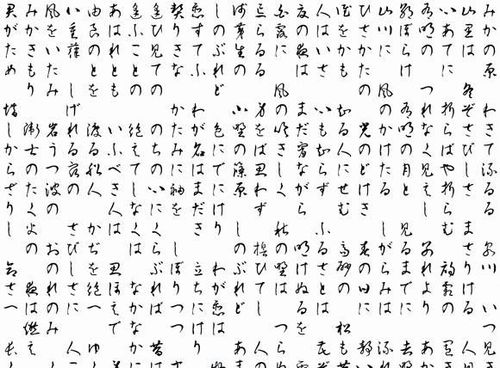 みかの原 わきて流るる 泉川 いつ見
山里は 冬ぞさびしさ まさりける 人
心あてに 折らばや折らむ 初霜の 置
有明の つれなく見えし 別れより あ
朝ぼらけ 有明の月と 見るまでに 吉野
山川に 風のかけたる しがらみは 流れ
ひさかたの 光のどけき 春の日に 静
誰をかも 知る人にせむ 高砂の 松も昔
人はいさ 心も知らず ふるさとは 花ぞ
夏の夜は まだ宵ながら 明けぬるを
白露に 風の吹きしく 秋の野は つら
忘らるる 身をば思わず 誓ひてし 人の
浅茅生の 小野の篠原 しのぶれど あま
しのぶれど 色にでにけり わが恋は
恋すてふ わが名はまだき 立ちにけり
契りきな かたみに袖を しぼりつつ
逢ひ見ての のちの心に くらぶれば 昔は
逢ふことの 絶えてしなくは なかなかに
あはれとも いふべき人は 思ほえで
由良のとを 渡る舟人 かぢを絶え ゆく
八重葎 しげれる宿の さびしきに 人こ
風をいたみ 岩うつ波の おのれのみ
みかきもり 衛士のたく火の 夜は燃え
君がため 惜しからざりし 命さへ 長く